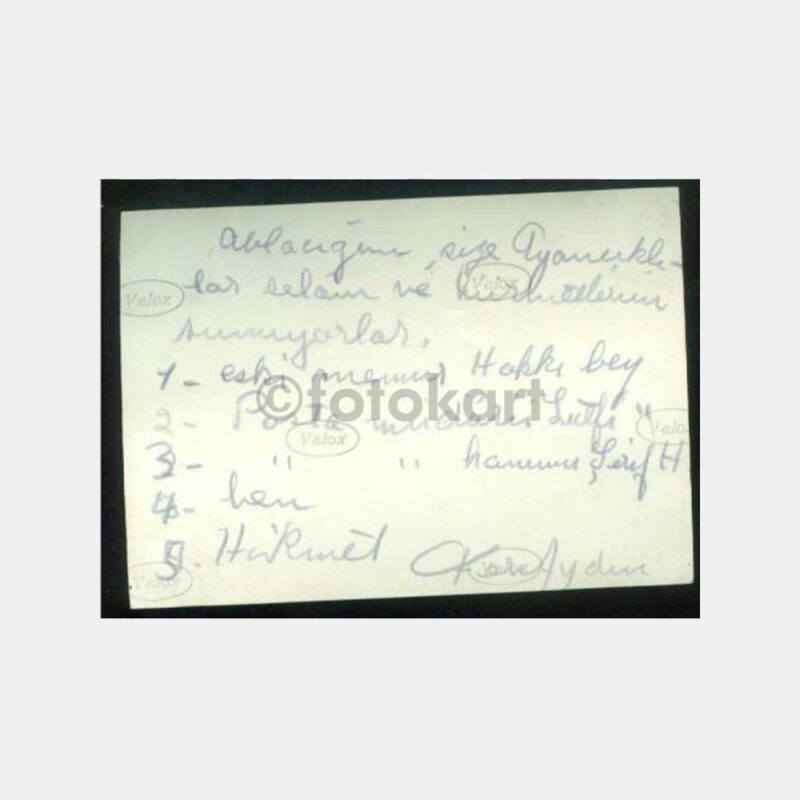 Ablacığım, size Ayancıklı-
lar selâm ve hürmetlerini
sunuyorlar.
1- eski memur Hakkı bey
2- Posta müdürü Lütfi "
3- " " hanımı Şerif H.
4- ben
5. Hikmet Aydın
©fotokart
Velox
Velox
Velox
Velox
Velox